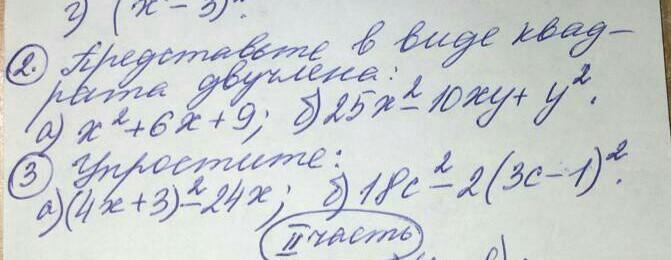 г) (x - 3)².
2. Представьте в виде квад-
рата двучлена:
а) x² + 6x + 9; б) 25x² - 10xy + y².
3 Упростите:
а) (4x + 3)² - 24x; б) 18c² - 2(3c - 1)².
II часть